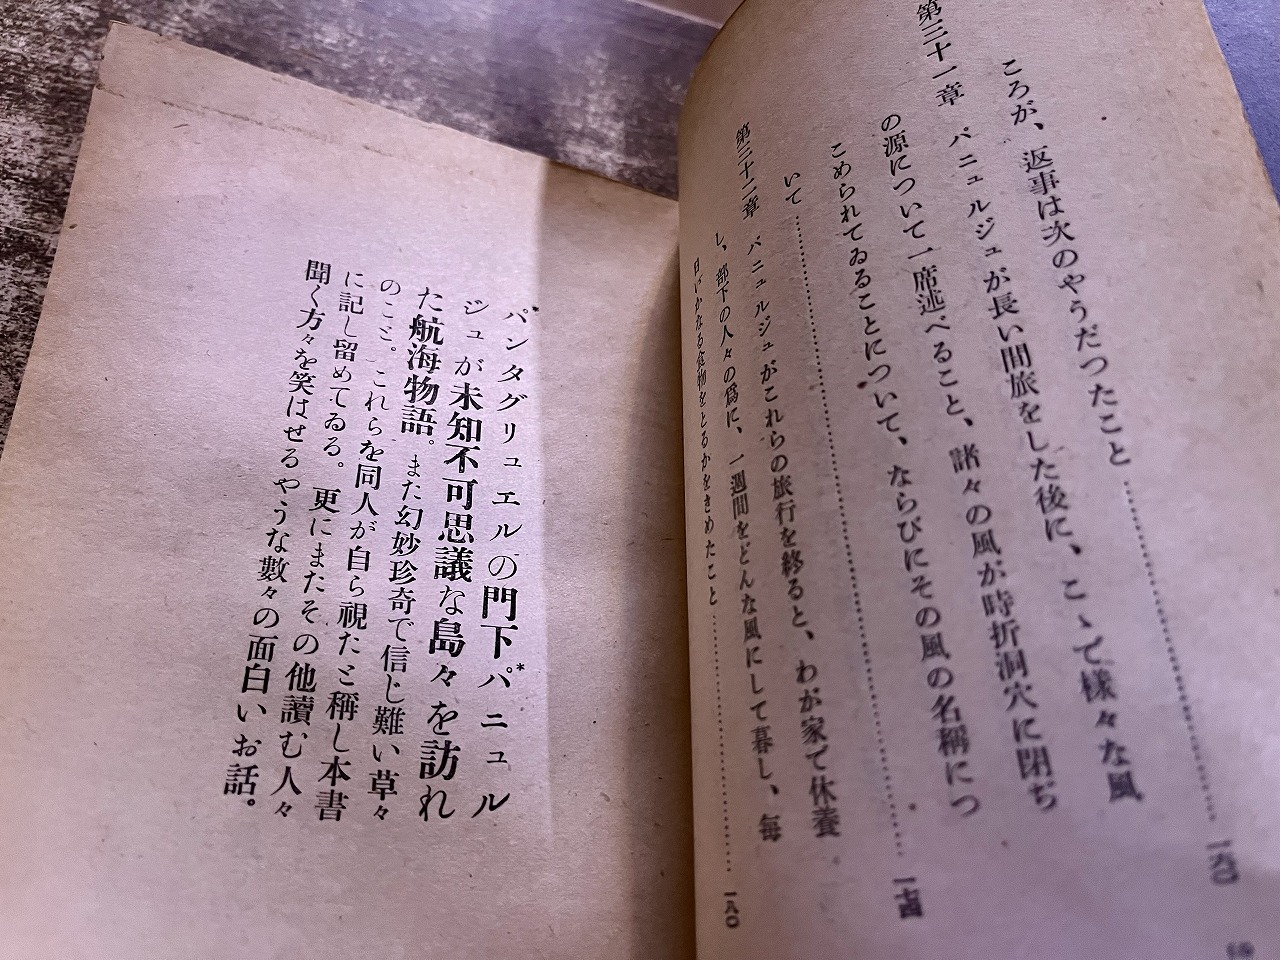 ころが、返事は次のやうだつたこと…………一六〇
第三十一章 パニュルジュが長い間旅をした後に、こゝで様々な風
の源について一席述べること、諸々の風が時折洞穴に閉ぢ
こめられてゐることについて、ならびにその風の名稱につ
いて…………一七四
第三十二章 パニュルジュがこれらの旅行を終ると、わが家で休養
し、部下の人々の爲に、一週間をどんな風にして暮し、毎
日いかなる食物をとるかをきめたこと…………一八〇
パンタグリュエルの門下パニュル
ジュが未知不可思議な島々を訪れ
た航海物語。また幻妙珍奇で信じ難い草々
のこと。これらを同人が自ら視たと稱し本書
に記し留めてゐる。更にまたその他讀む人々
聞く方々を笑はせるやうな數々の面白いお話。